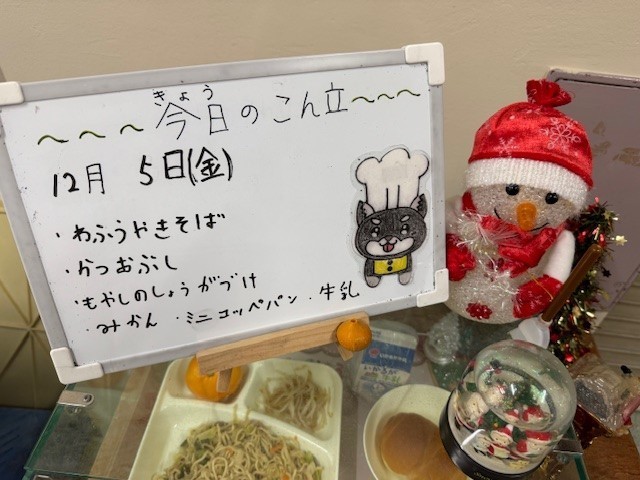 きょう
～～～今日のこん立～～～
12月 5日(金)
・わふうやきそば
・かつおぶし
・もやしのしょうがづけ
・みかん ・ミニコッペパン ・牛乳